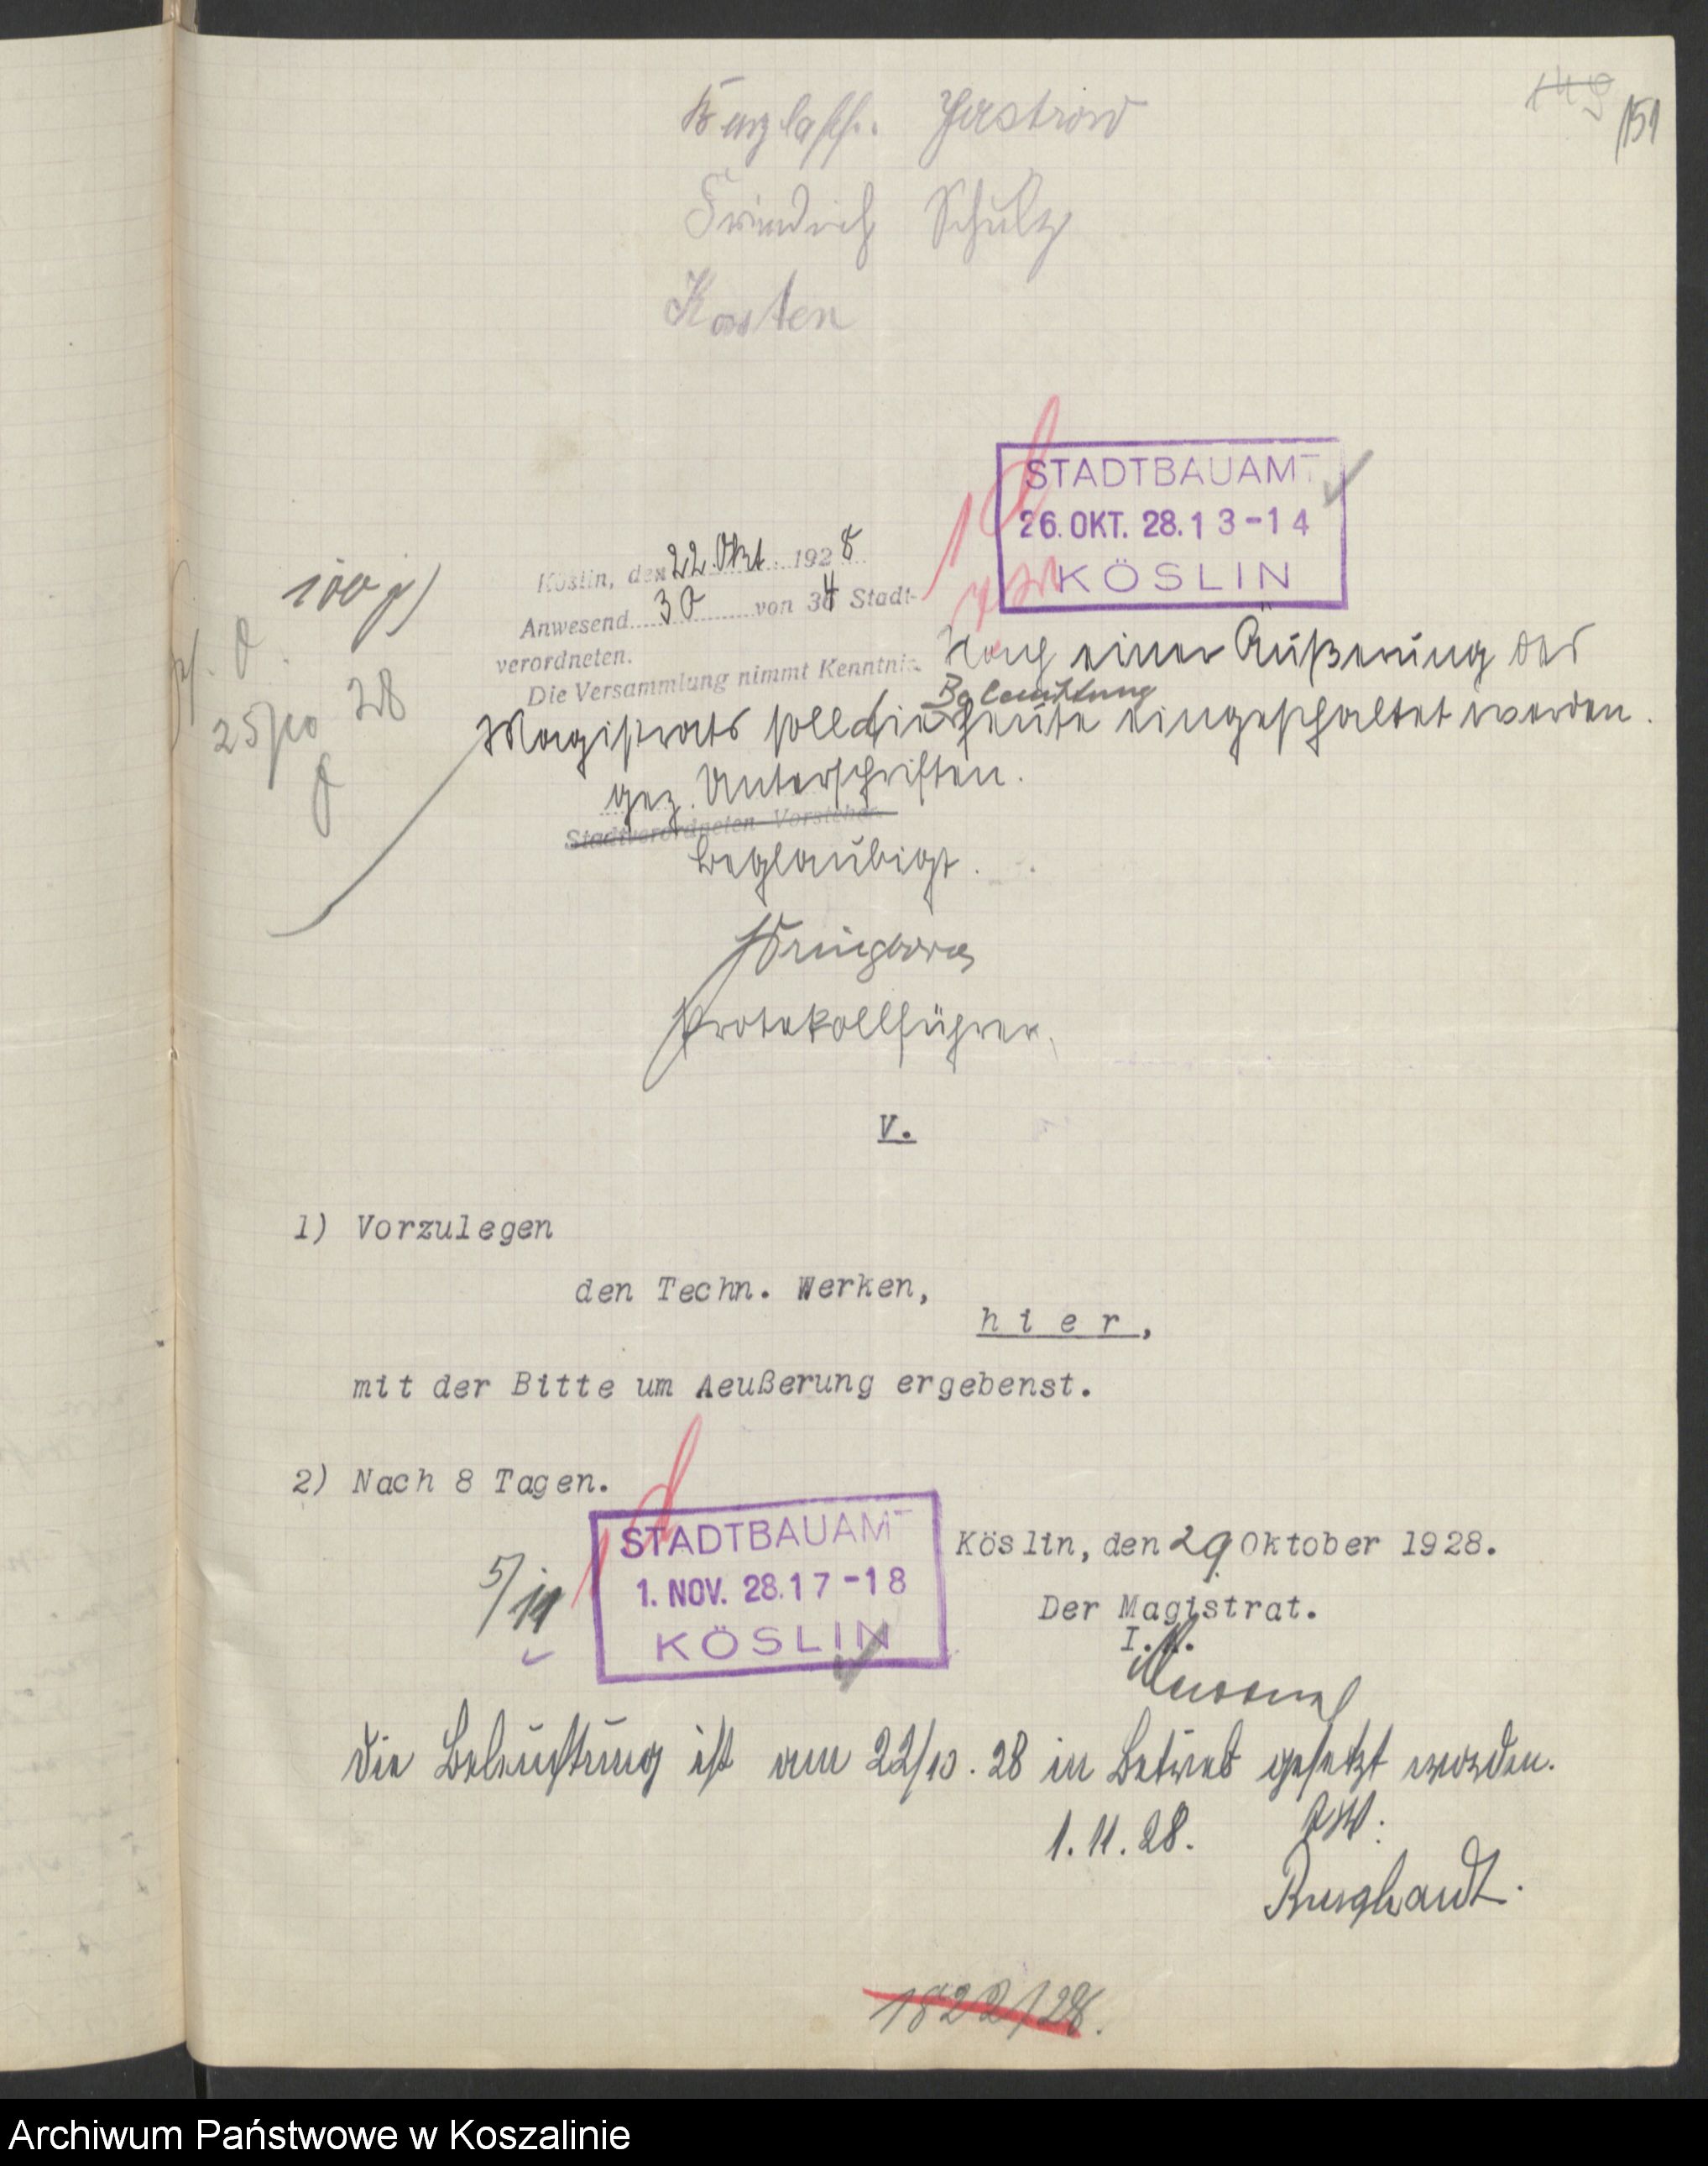 149
151
Jastrow
Friedrich Schulz
Karsten
STADTBAUAMT
26. OKT. 28. 13-14
KÖSLIN
Köslin, den 22. Okt. 1928
Anwesend 30 von 34 Stadt-
verordneten.
Die Versammlung nimmt Kenntnis.
Nach einer Äußerung des
Beleuchtung
Magistrats soll die heute eingeschaltet werden.
gez. Unterschriften.
Stadtverordneten-Vorsteher
Beglaubigt.
Protokollführer.
25/10 28
V.
1) Vorzulegen
den Techn. Werken,
hier,
mit der Bitte um Aeußerung ergebenst.
2) Nach 8 Tagen.
STADTBAUAMT
1. NOV. 28. 17-18
KÖSLIN
5/11
Köslin, den 29 Oktober 1928.
Der Magistrat.
Die Beleuchtung ist am 22/10. 28 in Betrieb gesetzt worden.
1.11.28.
Burghardt.
1822/28.
Archiwum Państwowe w Koszalinie